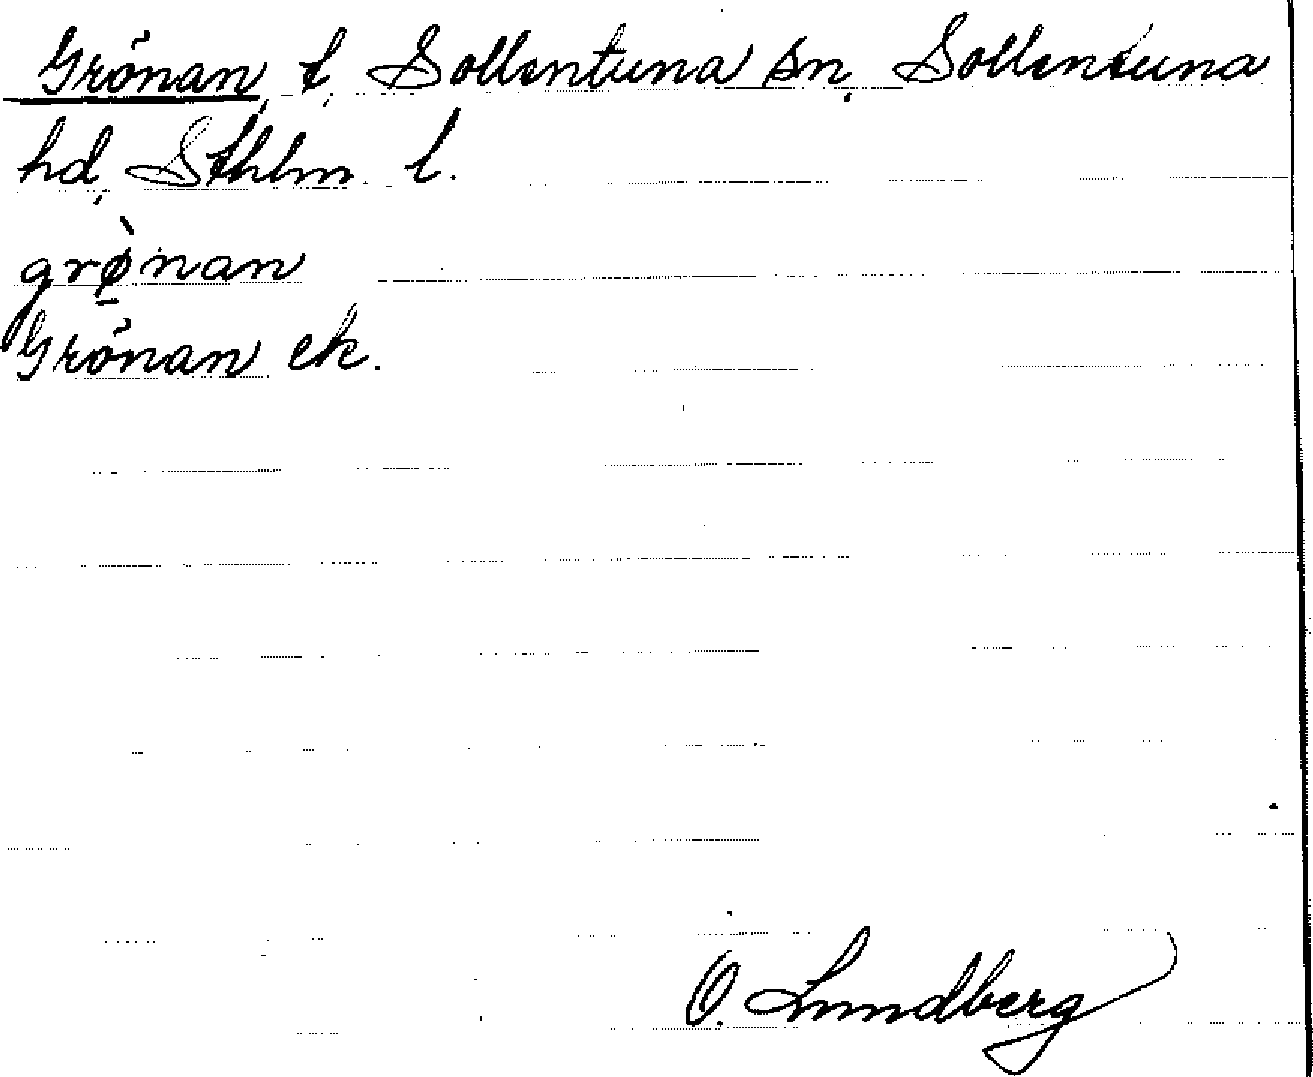 Grönan, t, Sollentuna sn, Sollentuna
hd, Sthlm l.
grø̱̀nan
Grönan ek.
O. Lundberg